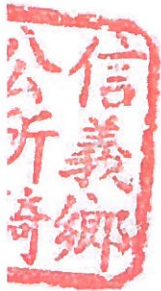 信義鄉
公所騎